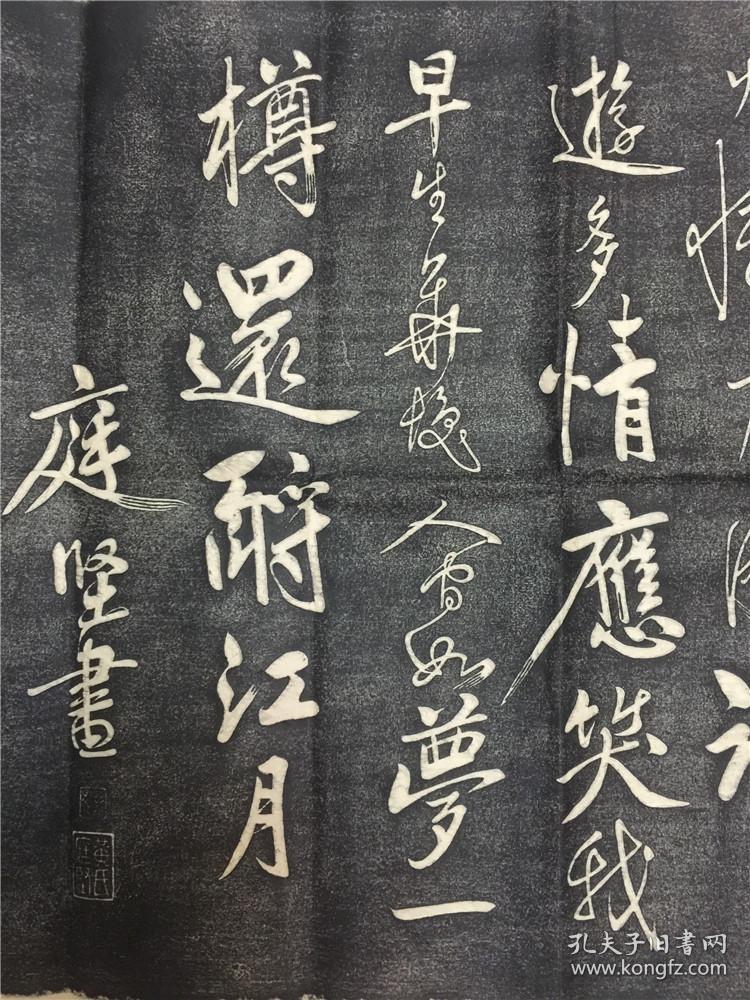 遊多情應笑我
早生華髮人間如夢一
樽還酹江月
庭堅書
孔夫子旧書网
www.kongfz.com